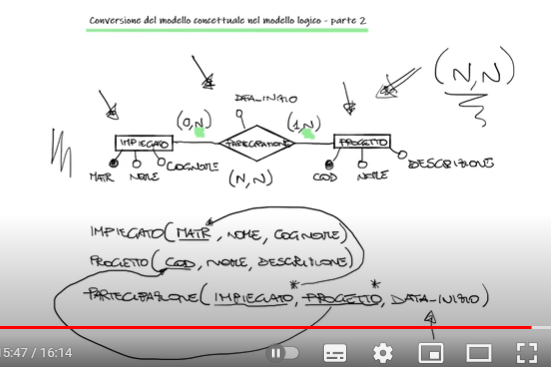 Conversione del modello concettuale nel modello logico - parte 2
(N,N)
DATA_INIZIO
(0,N) (1,N)
IMPIEGATO PARTECIPAZIONE PROGETTO
MATR NOME COGNOME (N,N) COD NOME DESCRIZIONE
IMPIEGATO(MATR, NOME, COGNOME)
PROGETTO(COD, NOME, DESCRIZIONE)
PARTECIPAZIONE(IMPIEGATO*, PROGETTO*, DATA_INIZIO)
15:47 / 16:14